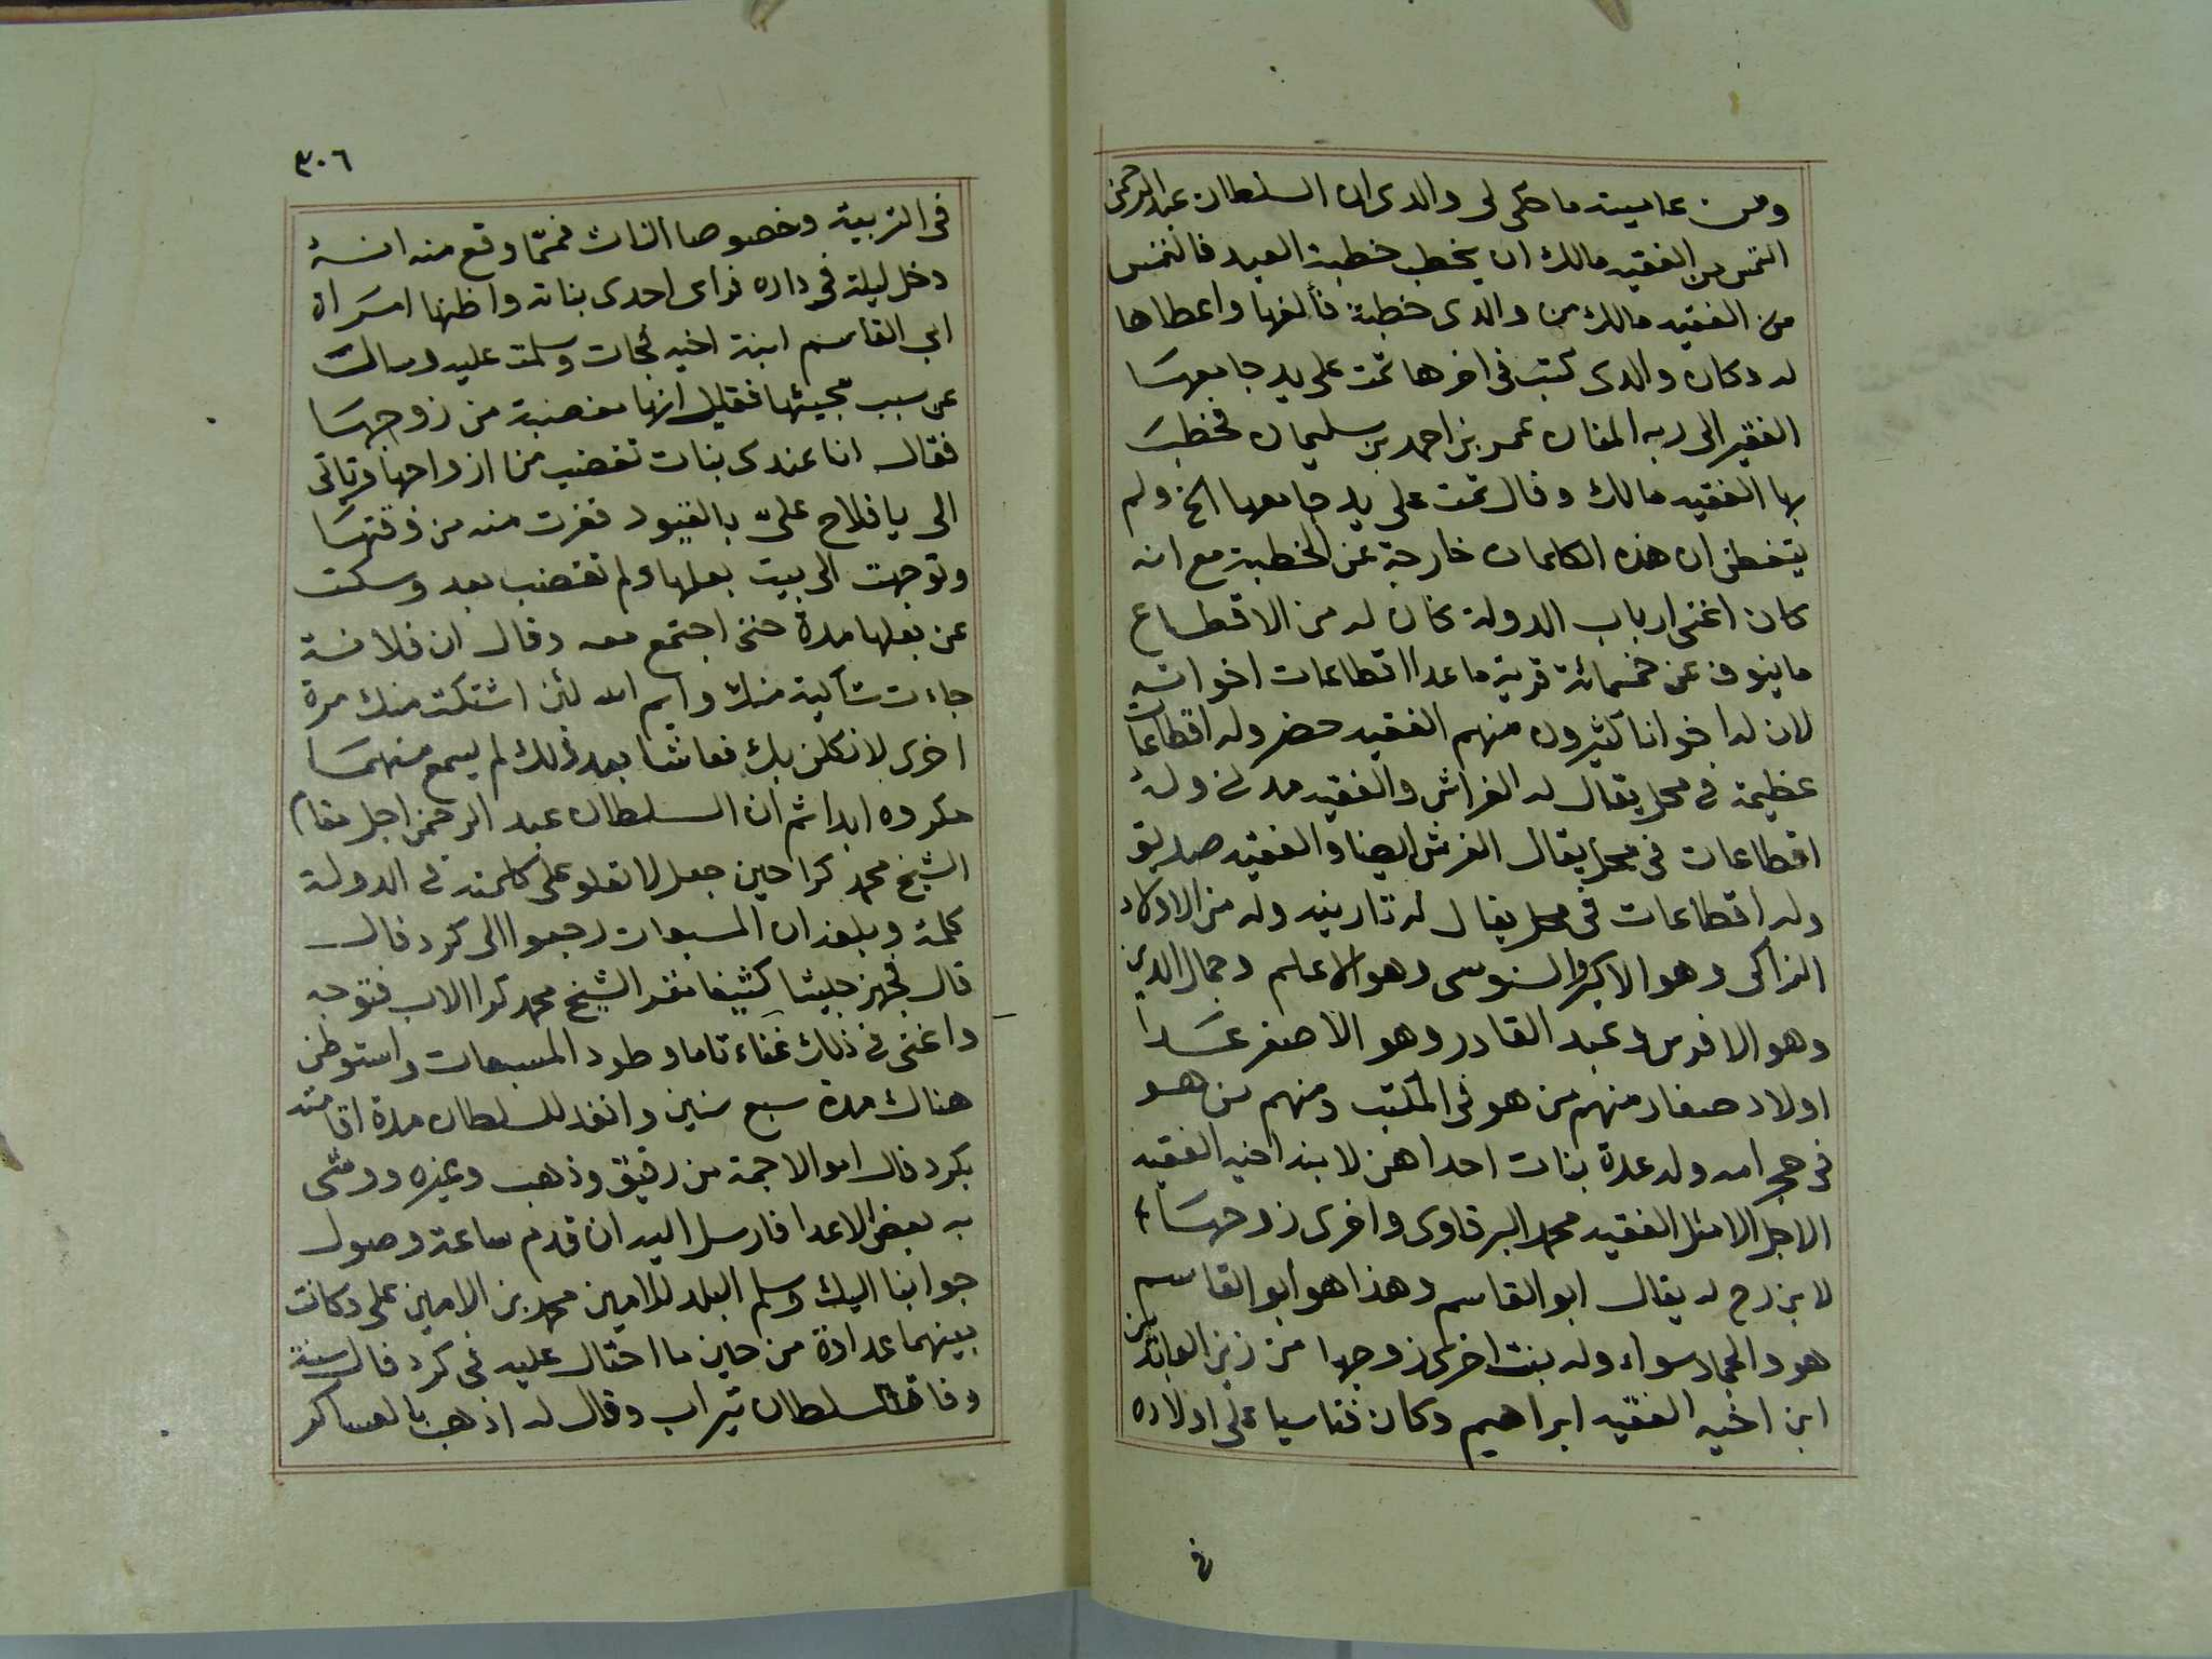 ومن عاميته ما حكى لى والدى ان السلطان عبد الرحمن
التمس من الفقيه مالك ان يخطب خطبة العيد فالتمس
من الفقيه مالك من والدى خطبة فألفها واعطاها
له وكان والدى كتب فى اخرها تمت على يد جامعها
الفقير الى ربه المنان عمر بن احمد بن سليمان فخطب
بها الفقيه مالك وقال تمت على يد جامعها الخ ولم
يتفطن ان هذه الكلمات خارجة عن الخطبة مع انه
كان اغنى ارباب الدولة كان له من الاقطاع
ما ينوف عن خمسمائة قرية ما عدا اقطاعات اخواته
لان له اخوانا كثيرون منهم الفقيه حضر وله اقطاعات
عظيمة فى محل يقال له الفراش والفقيه مدنى وله
اقطاعات فى محل يقال الفرش ايضا والفقيه صديق
وله اقطاعات فى محل يقال له تارينه وله من الاولاد
الزاكى وهو الاكبر والسنوسى وهو الاعلم وجمال الدين
وهو الافرس وعبد القادر وهو الاصغر عدا
اولاد صغار منهم من هو فى المكتب ومنهم من هو
فى حجر امه وله عدة بنات احداهن لابن اخيه الفقيه
الاجل الامثل الفقيه محمد البرقاوى واخرى زوجها
لابن زح له يقال ابو القاسم وهذا هو ابو القاسم
هو والجماد سواء وله بنت اخرى زوجها من زين العابدين
ابن اخيه الفقيه ابراهيم وكان قاسيا على اولاده
فى
٣٠٦
فى التربية وخصوصا الاناث فمما وقع منه انه
دخل ليلة فى داره فراى احدى بناته واظنها امراة
ابى القاسم ابنة اخيه فجات وسلمت عليه وسالت
عن سبب مجيئها فقيل انها مغضبة من زوجها
فقال انا عندى بنات تغضب من ازواجها وتاتى
الى يا فلاح علىّ بالقيود ففرت منه من وقتها
وتوجهت الى بيت بعلها ولم تغضب بعد وسكت
عن بعلها مدة حتى اجتمع معه وقال ان فلانة
جاءت شاكية منك وايم الله لئن اشتكت منك مرة
اخرى لانكلن بك فعاشا بعد ذلك لم يسمع منهما
مكروه ابدا ثم ان السلطان عبد الرحمن اجل مقام
الشيخ محمد كرا حين جعل لا تعلو على كلمته فى الدولة
كلمة وبلغه ان المسبعات رجعوا الى كردفال
قال فجهز جيشا كثيفا نفد الشيخ محمد كرا الاب فتوجه
واغنى فى ذلك غناء تاما وطرد المسبعات واستوطن
هناك مدة سبع سنين وانفد للسلطان مدة اقامته
بكردفال اموالا جمة من رقيق وذهب وغيره ووشى
به بعض الاعدا فارسل اليه ان قدم ساعة وصول
جوابنا اليك وسلم البلد للامين محمد بن الامين على وكانت
بينهما عداوة من حين ما احتال عليه فى كردفال سنة
وفاة السلطان تيراب وقال له اذهب بالعساكر